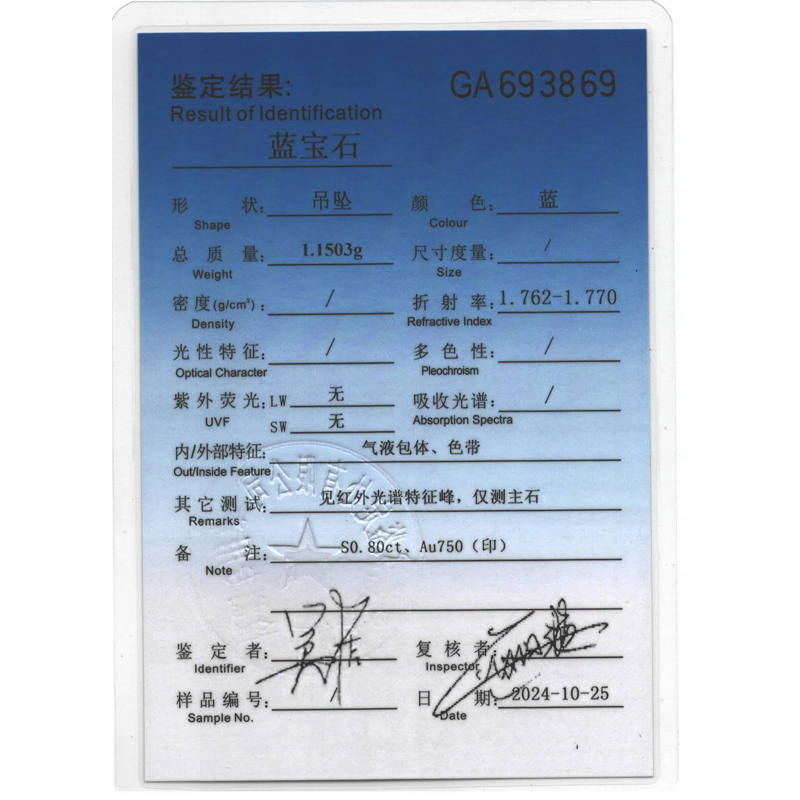 鉴定结果: GA693869
Result of Identification
蓝宝石
形 状: 吊坠 颜 色: 蓝
Shape Colour
总 质 量: 1.1503g 尺寸度量: /
Weight Size
密度(g/cm³): / 折 射 率: 1.762-1.770
Density Refractive Index
光性特征: / 多 色 性: /
Optical Character Pleochroism
紫外荧光: LW 无 吸收光谱: /
UVF SW 无 Absorption Spectra
内/外部特征: 气液包体、色带
Out/Inside Feature
其它测试: 见红外光谱特征峰，仅测主石
Remarks
备 注: S0.80ct、Au750（印）
Note
鉴 定 者: 复 核 者:
Identifier Inspector
样品编号: / 日 期: 2024-10-25
Sample No. Date